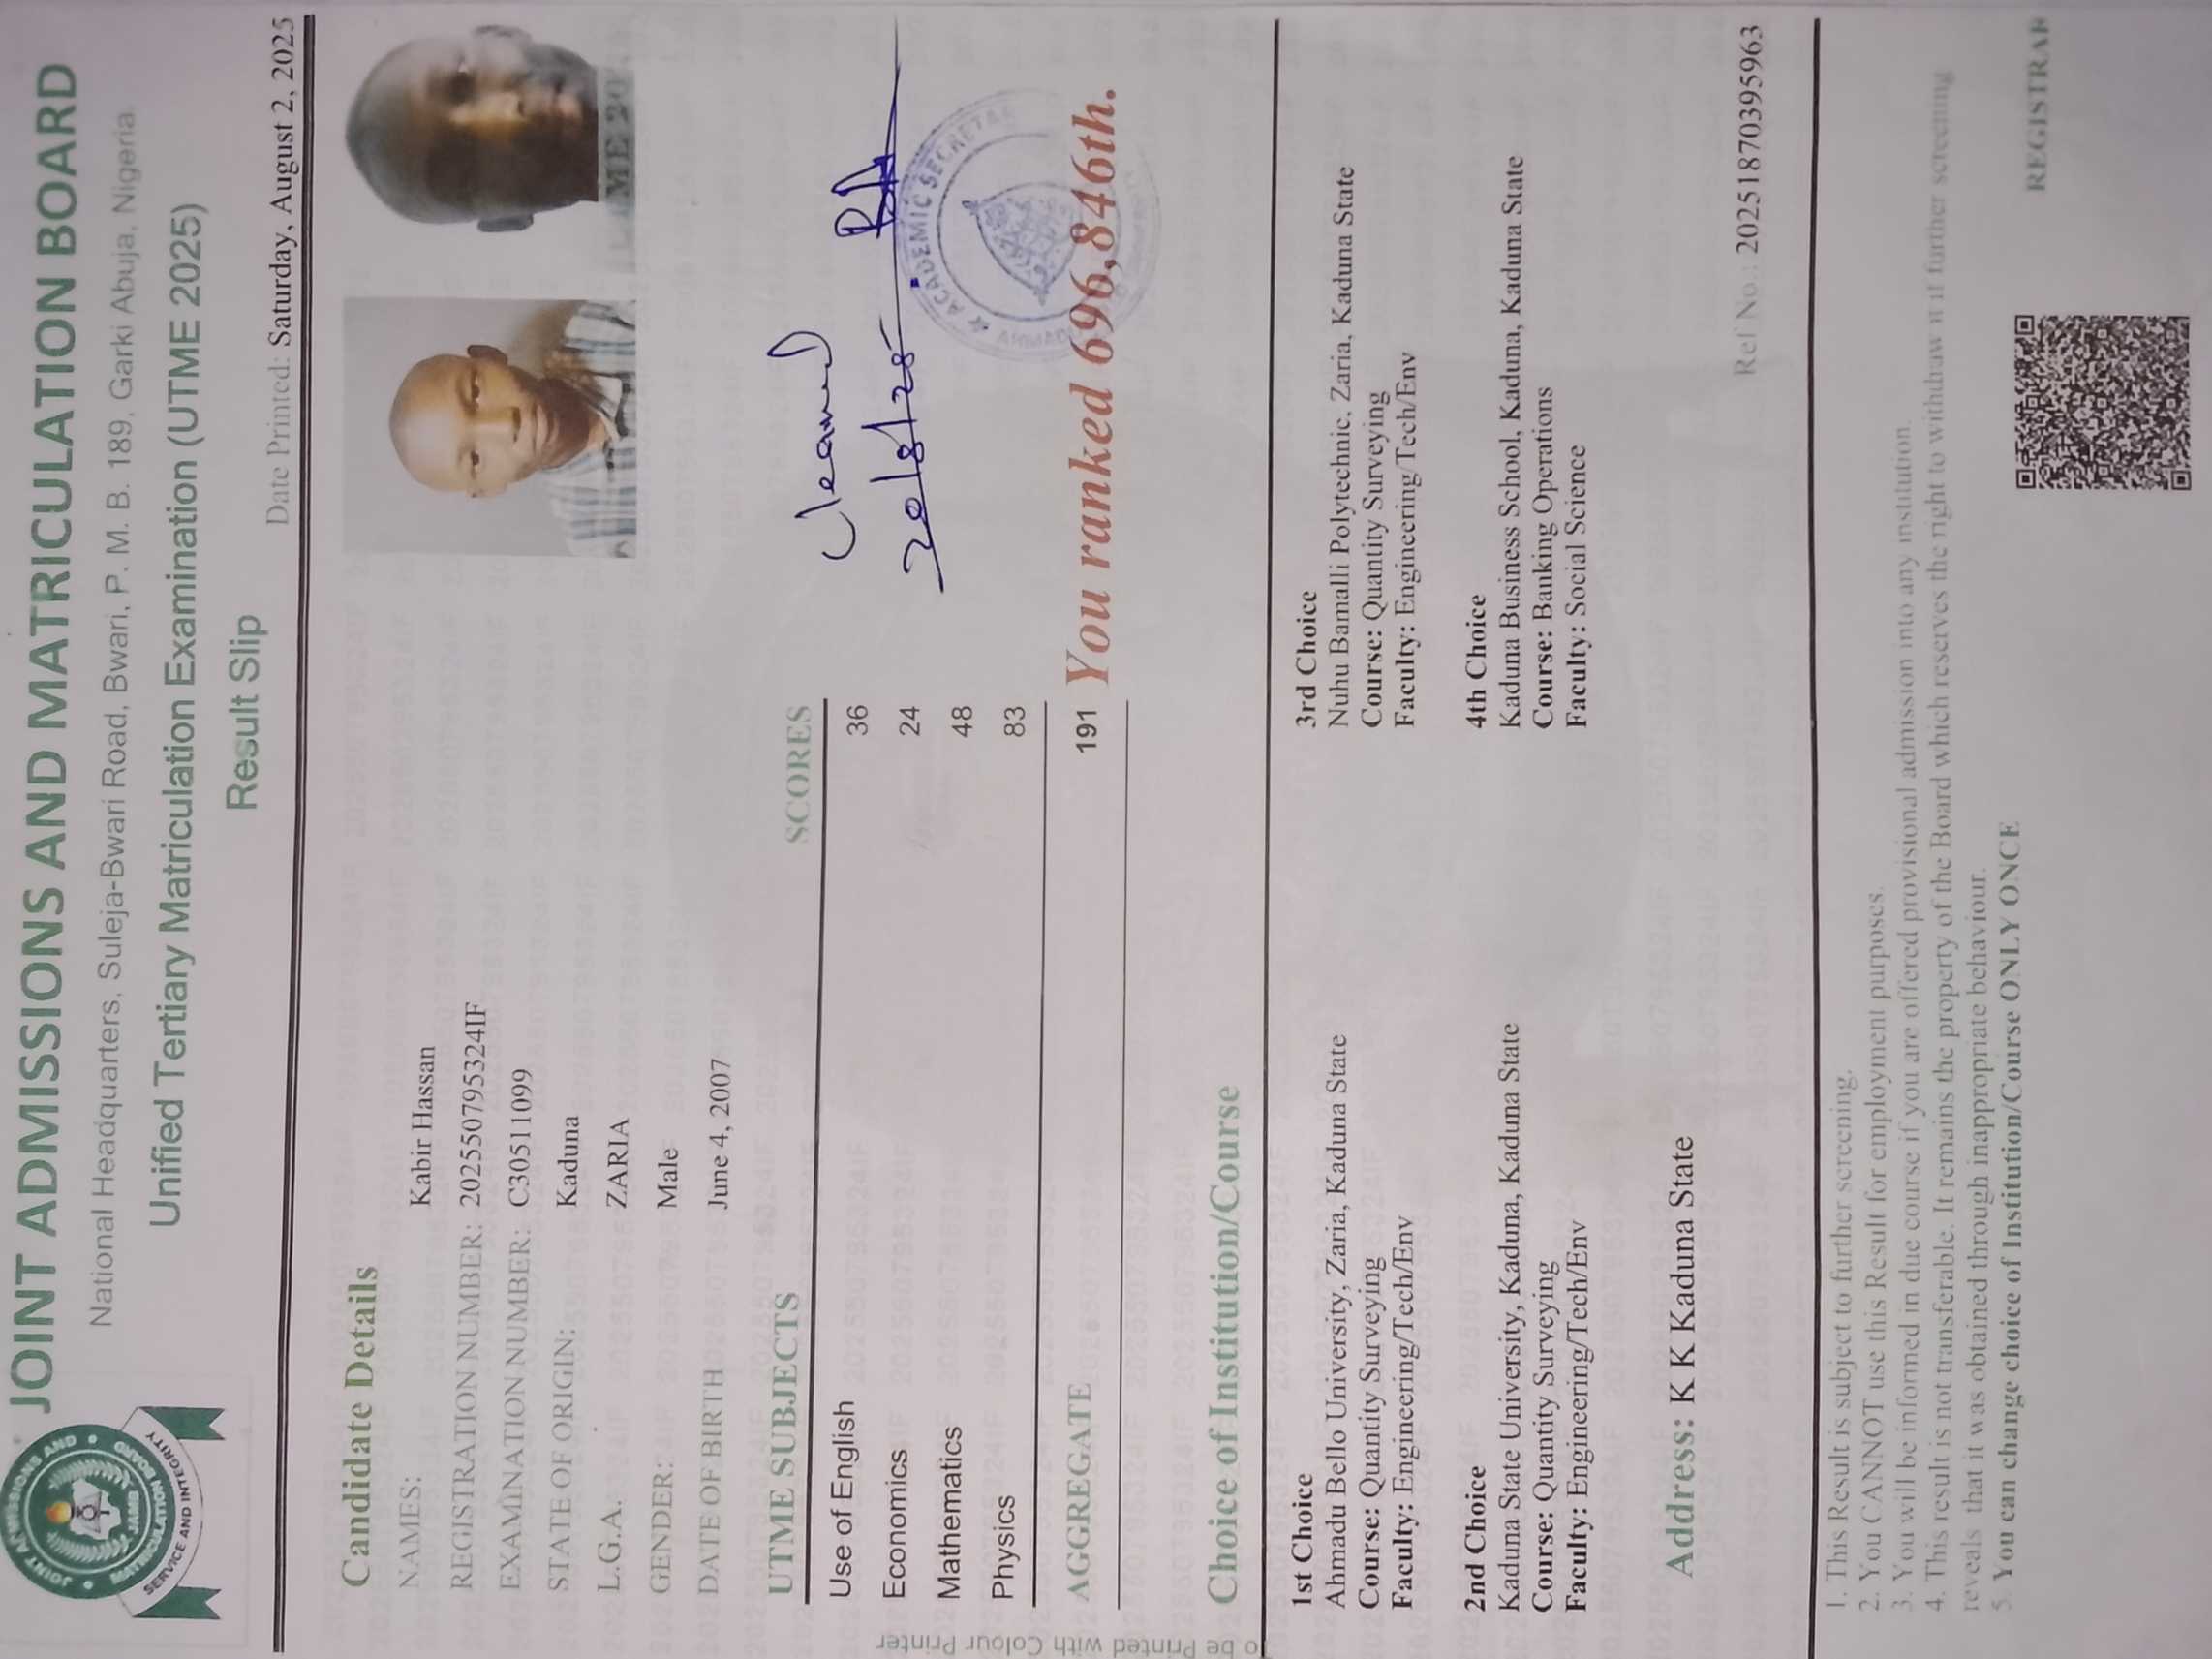 JOINT ADMISSIONS AND MATRICULATION BOARD
National Headquarters, Suleja-Bwari Road, Bwari, P. M. B. 189, Garki Abuja, Nigeria
Unified Tertiary Matriculation Examination (UTME 2025)
Result Slip
Date Printed: Saturday, August 2, 2025
JOINT ADMISSIONS AND MATRICULATION BOARD
JAMB
SERVICE AND INTEGRITY
Candidate Details
NAMES: Kabir Hassan
REGISTRATION NUMBER: 202550795324IF
EXAMINATION NUMBER: C30511099
STATE OF ORIGIN: Kaduna
L.G.A. ZARIA
GENDER: Male
DATE OF BIRTH June 4, 2007
UTME SUBJECTS SCORES
Use of English 36
Economics 24
Mathematics 48
Physics 83
AGGREGATE 191 You ranked 696,846th.
Cleared
20/8/25
ACADEMIC SECRETA
Choice of Institution/Course
1st Choice
Ahmadu Bello University, Zaria, Kaduna State
Course: Quantity Surveying
Faculty: Engineering/Tech/Env
2nd Choice
Kaduna State University, Kaduna, Kaduna State
Course: Quantity Surveying
Faculty: Engineering/Tech/Env
3rd Choice
Nuhu Bamalli Polytechnic, Zaria, Kaduna State
Course: Quantity Surveying
Faculty: Engineering/Tech/Env
4th Choice
Kaduna Business School, Kaduna, Kaduna State
Course: Banking Operations
Faculty: Social Science
Address: K K Kaduna State
Ref No.: 20251870395963
1. This Result is subject to further screening.
2. You CANNOT use this Result for employment purposes.
3. You will be informed in due course if you are offered provisional admission into any institution.
4. This result is not transferable. It remains the property of the Board which reserves the right to withdraw it if further screening
reveals that it was obtained through inappropriate behaviour.
5. You can change choice of Institution/Course ONLY ONCE
REGISTRAR
be Printed With Colour Printer